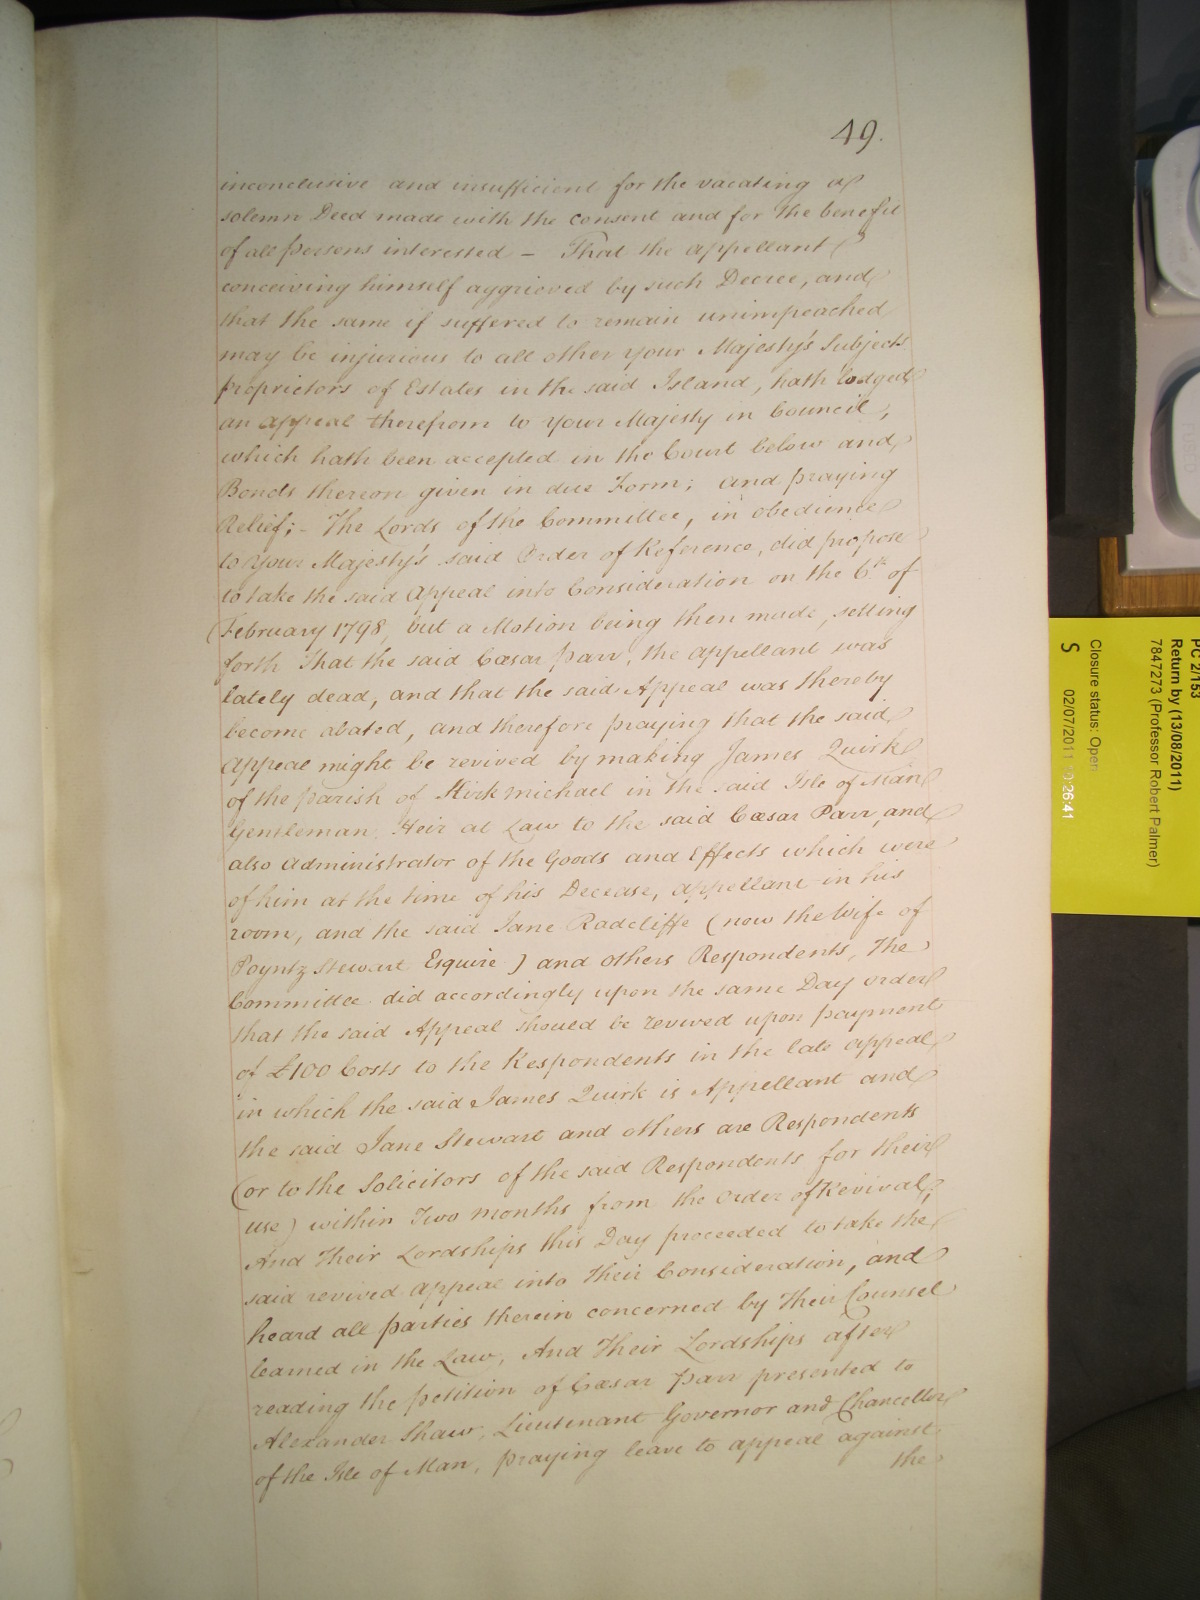 49.
inconclusive and insufficient for the vacating a
solemn Deed made with the consent and for the benefit
of all persons interested – That the appellant
conceiving himself aggrieved by such Decree, and
that the same if suffered to remain unimpeached
may be injurious to all other your Majesty's Subjects
proprietors of Estates in the said Island, hath lodged
an appeal therefrom to your Majesty in Council,
which hath been accepted in the Court below and
Bonds thereon given in due Form; and praying
Relief; - The Lords of the Committee, in obedience
to your Majesty's said Order of Reference, did propose
to take the said Appeal into Consideration on the 6th of
February 1798, but a Motion being then made, setting
forth That the said Cæsar Parr, the appellant was
lately dead, and that the said Appeal was thereby
become abated, and therefore praying that the said
Appeal might be revived by making James Quirk
of the parish of Kirk michael in the said Isle of Man
Gentleman, Heir at Law to the said Cæsar Parr, and
also administrator of the Goods and Effects which were
of him at the time of his Decease, appellant in his
room, and the said Jane Radcliffe (now the Wife of
Poyntz Stewart Esquire) and others Respondents, The
Committee did accordingly upon the same Day order
that the said Appeal should be revived upon payment
of £100 Costs to the Respondents in the late appeal,
in which the said James Quirk is Appellant and
the said Jane Stewart and others are Respondents
(or to the Solicitors of the said Respondents for their
use) within Two months from the Order of Revival,
And Their Lordships this Day proceeded to take the
said revived appeal into Their Consideration, and
heard all parties therein concerned by Their Counsel
learned in the Law, And Their Lordships after
reading the petition of Cæsar Parr presented to
Alexander Shaw, Lieutenant Governor and Chancellor
of the Isle of Man, praying leave to appeal against
the
PC 2/153
Return by (13/08/2011)
7847273 (Professor Robert Palmer)
Closure status: Open
S 02/07/2011 :26:41